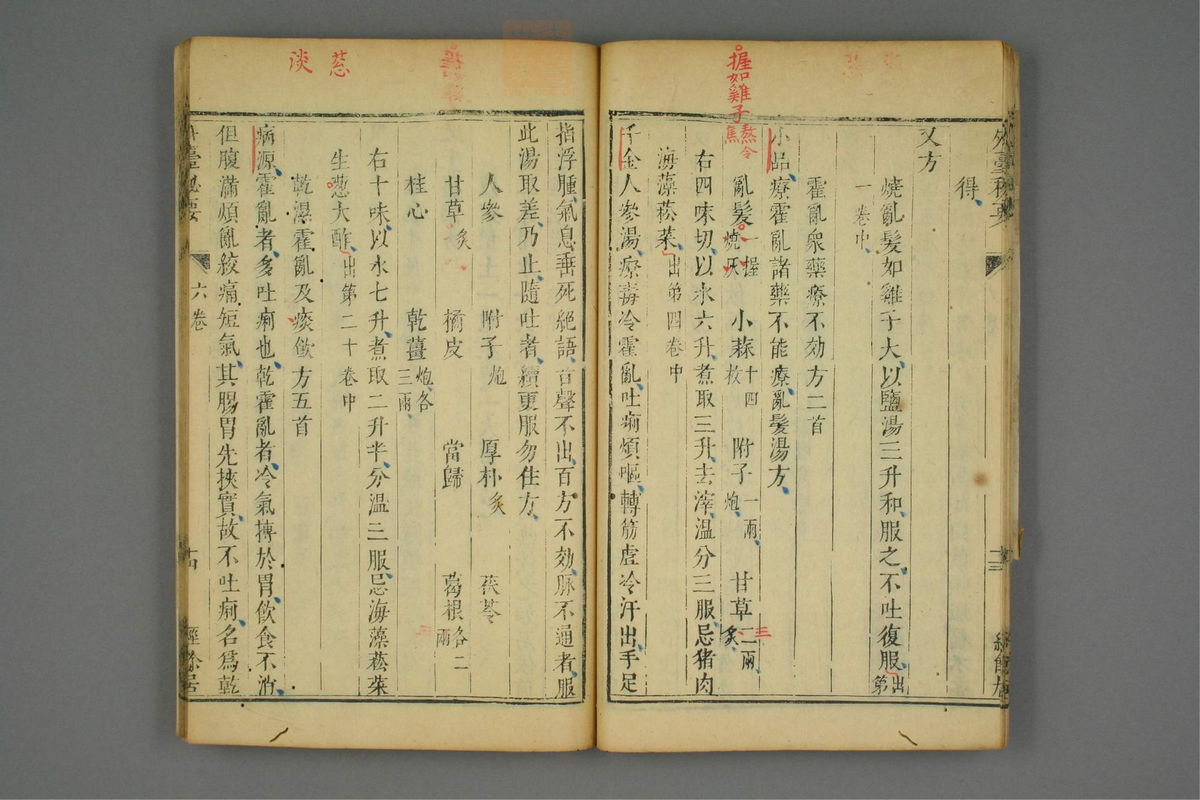 握如雞子
熬令
焦
得
又方
燒亂髮如雞子大以鹽湯三升和服之不吐復服出第
一卷中
霍亂衆藥療不効方二首
小品療霍亂諸藥不能療亂髮湯方
亂髮一握燒灰 小蒜十四枚 附子一兩炮 甘草二兩炙
三
右四味切以水六升煮取三升去滓温分三服忌猪肉
海藻菘菜出第四卷中
千金人參湯療毒冷霍亂吐痢煩嘔轉筋虛冷汗出手足
外臺秘要
十三
葱
淡
指浮腫氣息垂死絕語音聲不出百方不効脉不通者服
此湯取差乃止隨吐者續更服勿住方
人參 附子炮 厚朴炙 茯苓
甘草炙 橘皮 當歸 葛根各二兩
三
桂心 乾薑炮各三兩
右十味以水七升煮取二升半分温三服忌海藻菘菜
生葱大酢出第二十卷中
乾濕霍亂及痰飲方五首
病源霍亂者多吐痢也乾霍亂者冷氣搏於胃飲食不消
但腹滿煩亂絞痛短氣其腸胃先挾實故不吐痢名爲乾
六卷
十四
經餘居